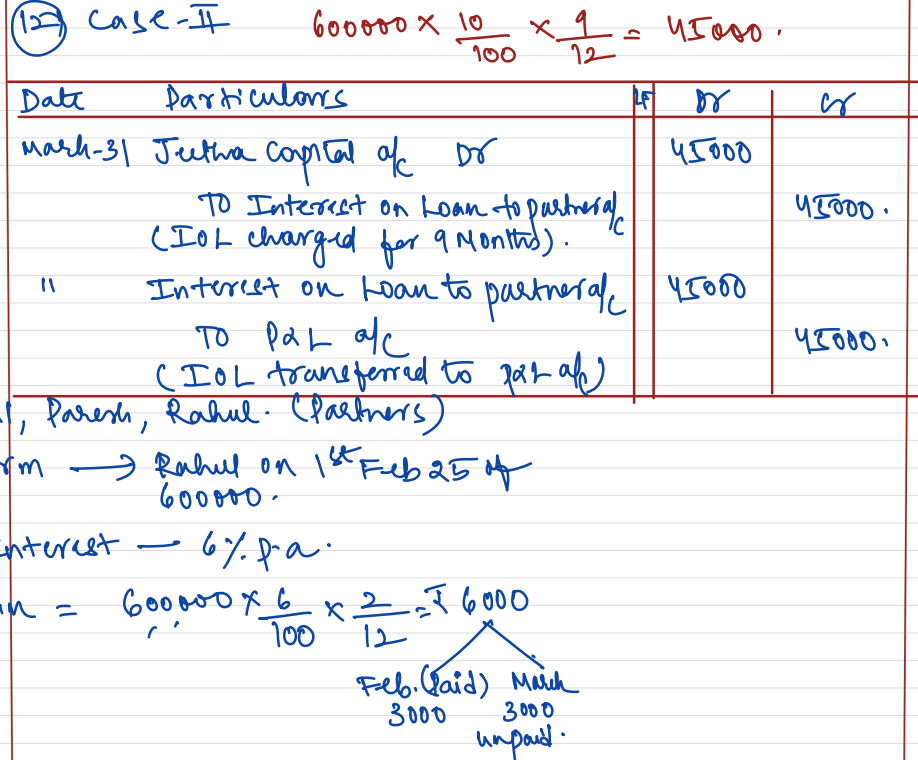 12 Case-II 600000 × 10/100 × 9/12 = 45000.
Date Particulars LF Dr Cr
March-31 Jeetha Capital a/c Dr 45000
To Interest on Loan to partner a/c 45000.
(IOL charged for 9 Months).
" Interest on Loan to partner a/c 45000
To P&L a/c 45000.
(IOL transferred to P&L a/c)
, Paresh, Rahul. (Partners)
rm → Rahul on 1st Feb 25 of
600000.
interest — 6% p.a.
= 600000 × 6/100 × 2/12 = ₹ 6000
Feb. (Paid) March
3000 3000
unpaid.